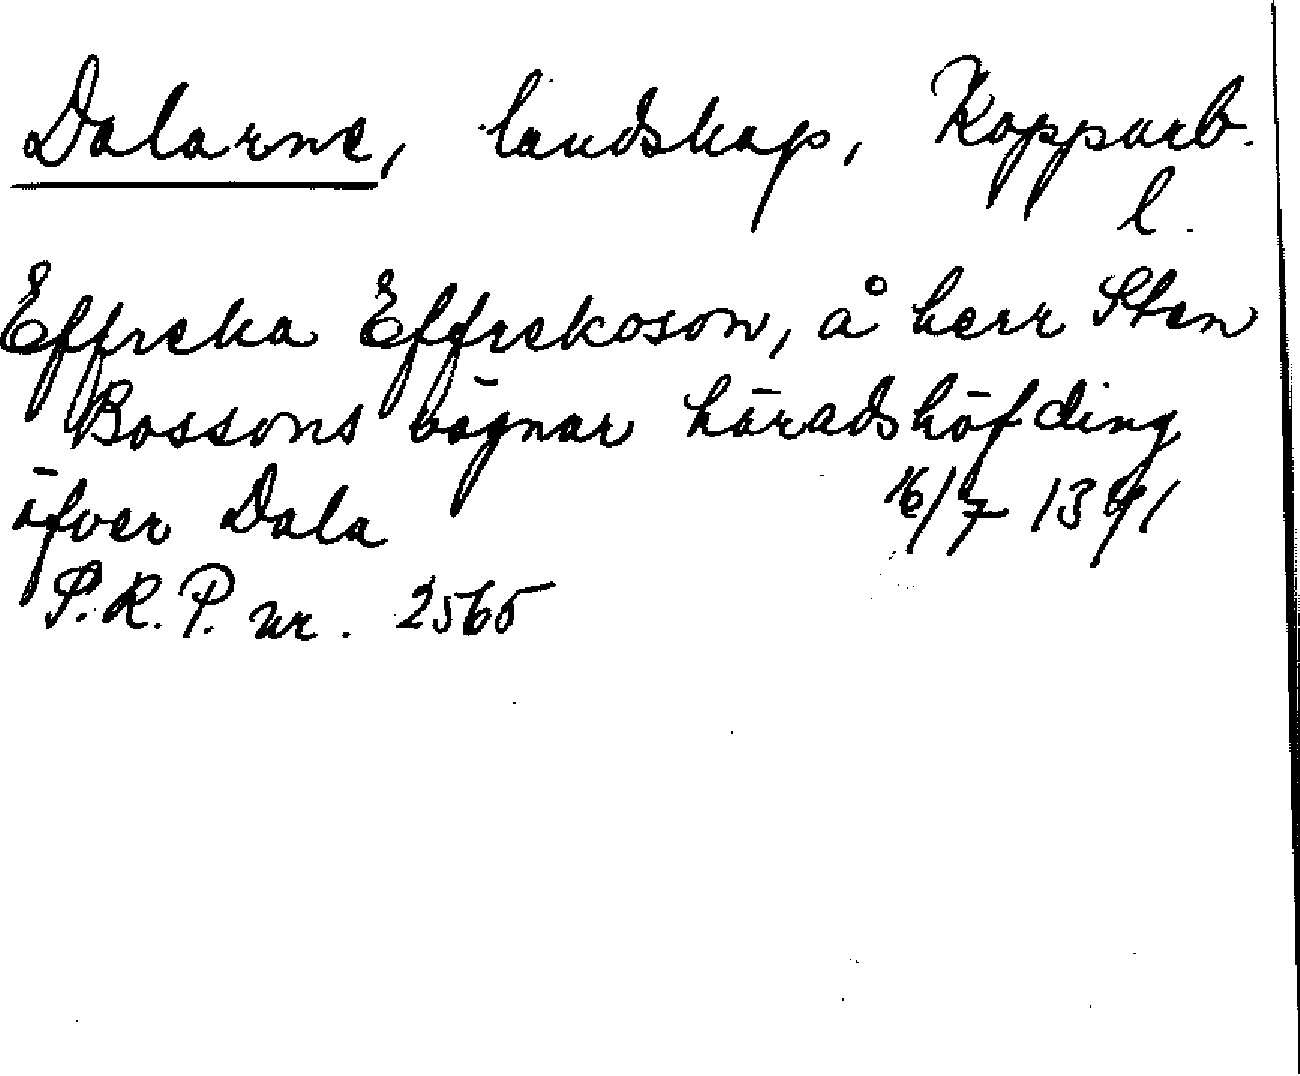 Dalarne, landskap, Kopparb.
l.
Effreka Effrekoson, å herr Sten
Bossons vägnar häradshöfding
öfver Dala 16/7 1391
S.R.P. nr. 2565